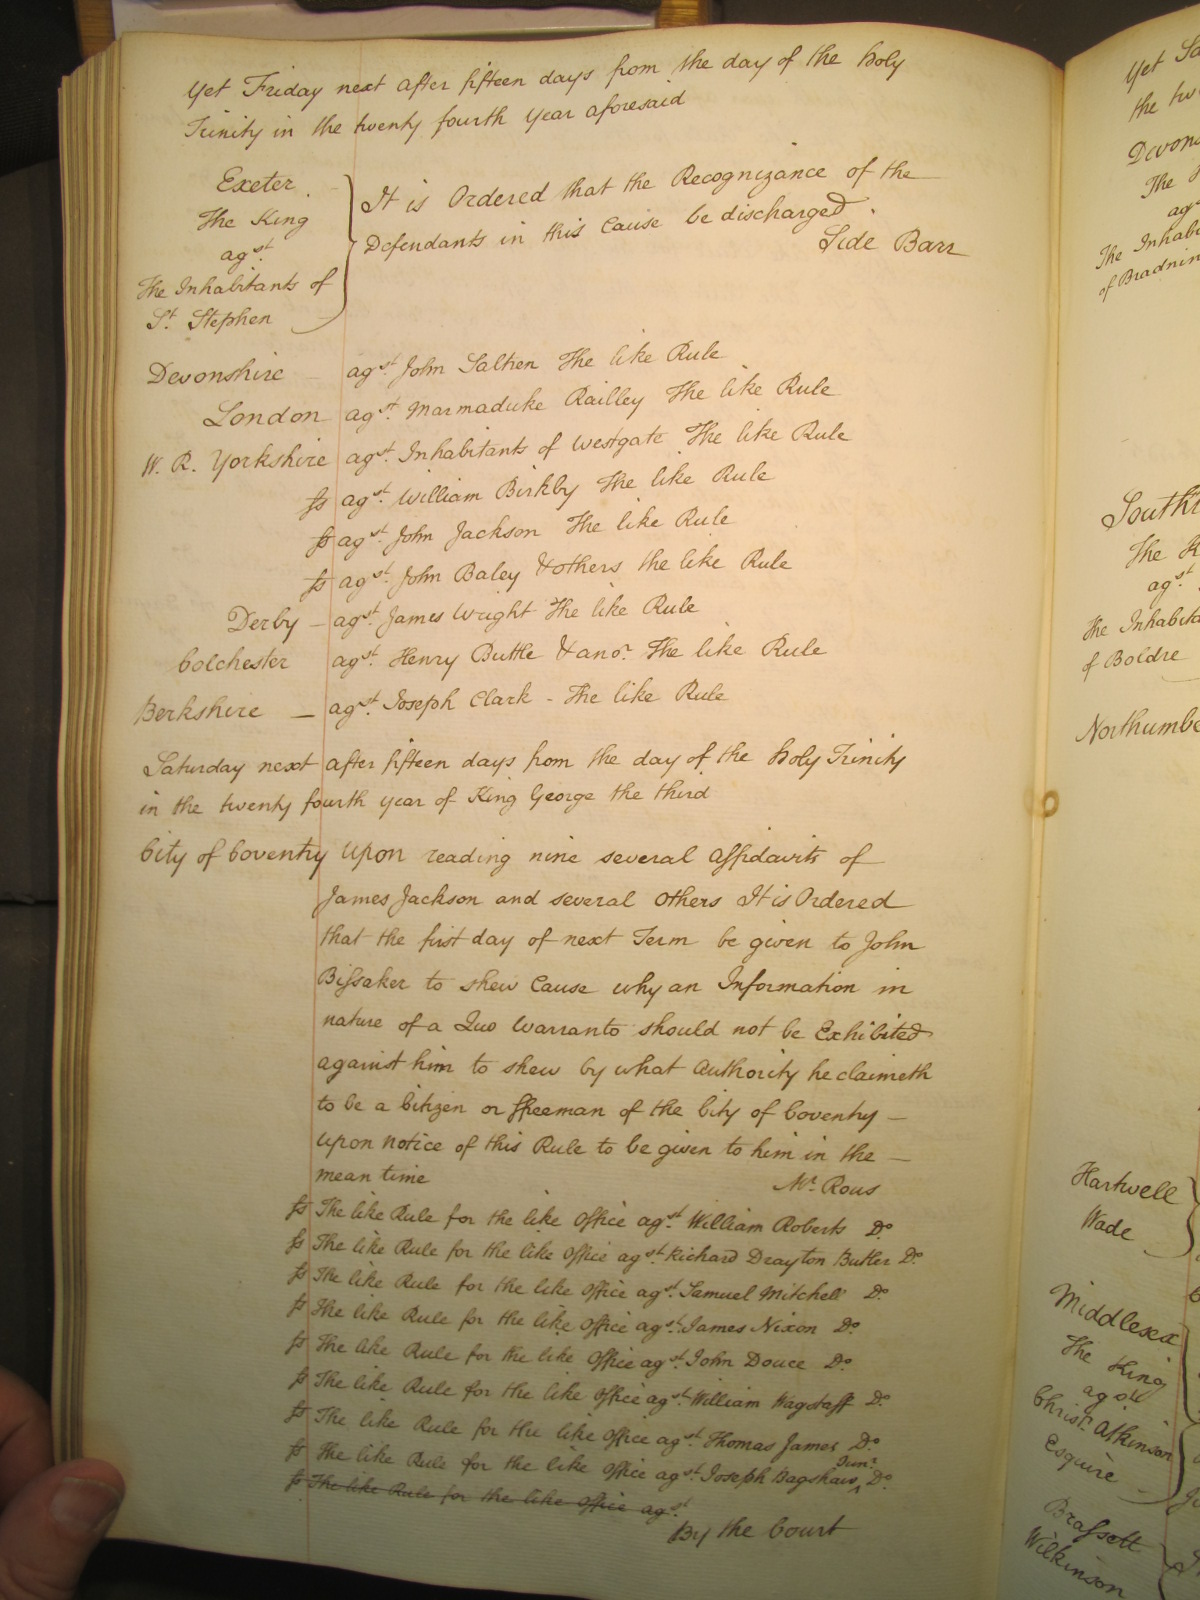 Yet Friday next after fifteen days from the day of the Holy
Trinity in the twenty fourth year aforesaid
Exeter
The King
agst.
The Inhabitants of
St. Stephen
It is Ordered that the Recognizance of the
Defendants in this Cause be discharged.
Side Barr
Devonshire agst. John Saltren The like Rule
London agst. Marmaduke Railley The like Rule
W. R. Yorkshire agst. Inhabitants of Westgate The like Rule
ss agst. William Birkby The like Rule
ss agst. John Jackson The like Rule
ss agst. John Baley & others the like Rule
Derby – agst. James Wright The like Rule
Colchester agst. Henry Buttle & anor. The like Rule
Berkshire — agst. Joseph Clark - The like Rule
Saturday next after fifteen days from the day of the Holy Trinity
in the twenty fourth year of King George the third
City of Coventry Upon reading nine several Affidavits of
James Jackson and several Others It is Ordered
that the first day of next Term be given to John
Bissaker to shew Cause why an Information in
nature of a Quo Warranto should not be Exhibited
against him to shew by what Authority he claimeth
to be a Citizen or ffreeman of the City of Coventry —
Upon notice of this Rule to be given to him in the —
mean time Mr. Rous
ss The like Rule for the like Office agst. William Roberts Do.
ss The like Rule for the like Office agst. Richard Drayton Butler Do.
ss The like Rule for the like Office agst. Samuel Mitchell Do.
ss The like Rule for the like Office agst. James Nixon Do.
ss The like Rule for the like Office agst. John Douce Do.
ss The like Rule for the like Office agst. William Wagstaff Do.
ss The like Rule for the like Office agst. Thomas James Do.
ss The like Rule for the like Office agst. Joseph Bagshaw Junr. Do.
ss The like Rule for the like Office agst.
By the Court
Yet
the
The
The
of
The K
agst.
The
of Boldre
Hartwell
Wade
Middlesex
The King
agst
Christr. Atkinson
Esquire
Brassett
Wilkinson